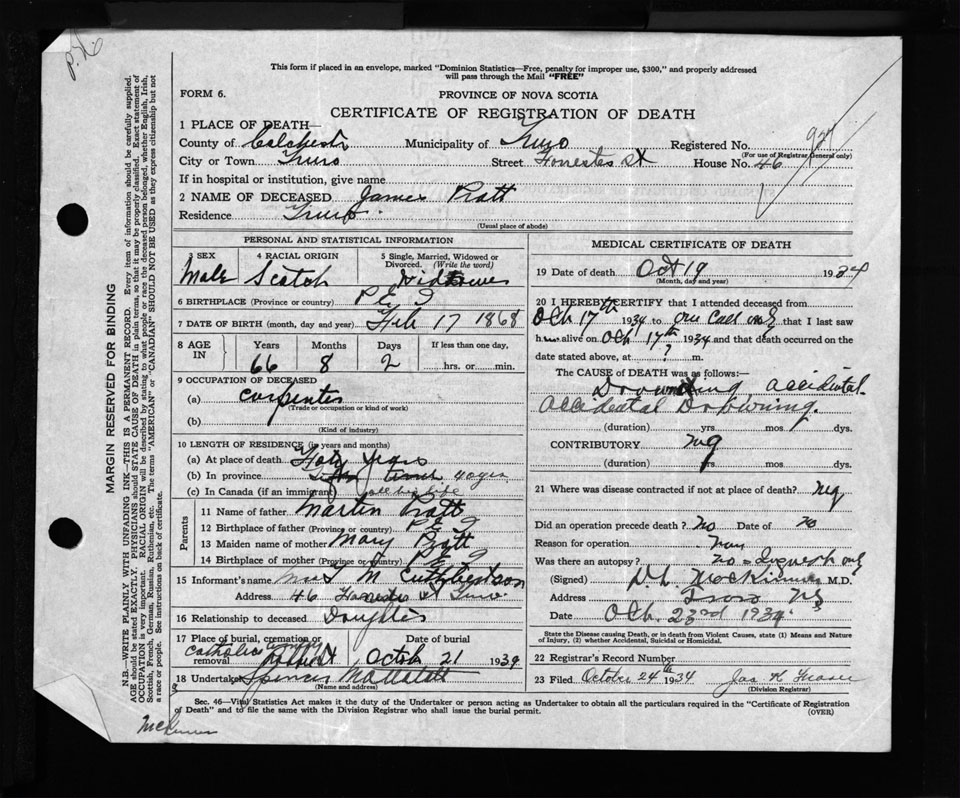 This form if placed in an envelope, marked "Dominion Statistics—Free, penalty for improper use, $300," and properly addressed
will pass through the Mail "FREE"
FORM 6.
PROVINCE OF NOVA SCOTIA
CERTIFICATE OF REGISTRATION OF DEATH
927
1 PLACE OF DEATH—
County of Colchester Municipality of Truro Registered No.
(For use of Registrar General only)
City or Town Truro Street Forrester St House No. 46
If in hospital or institution, give name
2 NAME OF DECEASED James Pratt
Residence Truro
(Usual place of abode)
PERSONAL AND STATISTICAL INFORMATION
3 SEX 4 RACIAL ORIGIN 5 Single, Married, Widowed or Divorced. (Write the word)
Male Scotch Widower
6 BIRTHPLACE (Province or country) P E I
7 DATE OF BIRTH (month, day and year) Feb 17 1868
8 AGE IN Years Months Days If less than one day,
66 8 2 hrs. or min.
9 OCCUPATION OF DECEASED
(a) Carpenter
(Trade or occupation or kind of work)
(b)
(Kind of industry)
10 LENGTH OF RESIDENCE (in years and months)
(a) At place of death Forty Years
(b) In province
(c) In Canada (if an immigrant) all his life
Parents
11 Name of father Martin Pratt
12 Birthplace of father (Province or country) P E I
13 Maiden name of mother Mary Pratt
14 Birthplace of mother (Province or country) P E I
15 Informant's name Mrs M Cuthbertson
Address 46 St Truro
16 Relationship to deceased Daughter
17 Place of burial, cremation or removal Date of burial
Catholic October 21 1934
18 Undertaker Spencer
(Name and address)
MEDICAL CERTIFICATE OF DEATH
19 Date of death Oct 19 1934
(Month, day and year)
20 I HEREBY CERTIFY that I attended deceased from
Oct 17th 1934 to one call only that I last saw
him alive on Oct 17th 1934 and that death occurred on the
date stated above, at ? m.
The CAUSE OF DEATH was as follows:
Drowning accidental.
accidental Drowning.
(duration) yrs. mos. dys.
CONTRIBUTORY neg
(duration) yrs. mos. dys.
21 Where was disease contracted if not at place of death? neg
Did an operation precede death? no Date of no
Reason for operation
Was there an autopsy? no = Inquest only
(Signed) M.D.
Address Truro NS
Date Oct. 23rd 1934
State the Disease causing Death, or in death from Violent Causes, state (1) Means and Nature
of Injury, (2) whether Accidental, Suicidal or Homicidal.
22 Registrar's Record Number
23 Filed October 24th 1934 Jas K Fraser
(Division Registrar)
Sec. 46—Vital Statistics Act makes it the duty of the Undertaker or person acting as Undertaker to obtain all the particulars required in the "Certificate of Registration
of Death" and to file the same with the Division Registrar who shall issue the burial permit.
(OVER)
MARGIN RESERVED FOR BINDING
N.B.—WRITE PLAINLY WITH UNFADING INK—THIS IS A PERMANENT RECORD. Every item of information should be carefully supplied.
AGE should be stated EXACTLY. PHYSICIANS should STATE CAUSE OF DEATH in plain terms, so that it may be properly classified. Exact statement of
OCCUPATION is very important. RACIAL ORIGIN will be described by stating to what people or race the deceased person belonged, whether English, Irish,
Scottish, French, German, Russian, Ruthenian, etc. The terms "AMERICAN" or "CANADIAN" SHOULD NOT BE USED as they express citizenship but not
a race or people. See instructions on back of certificate.